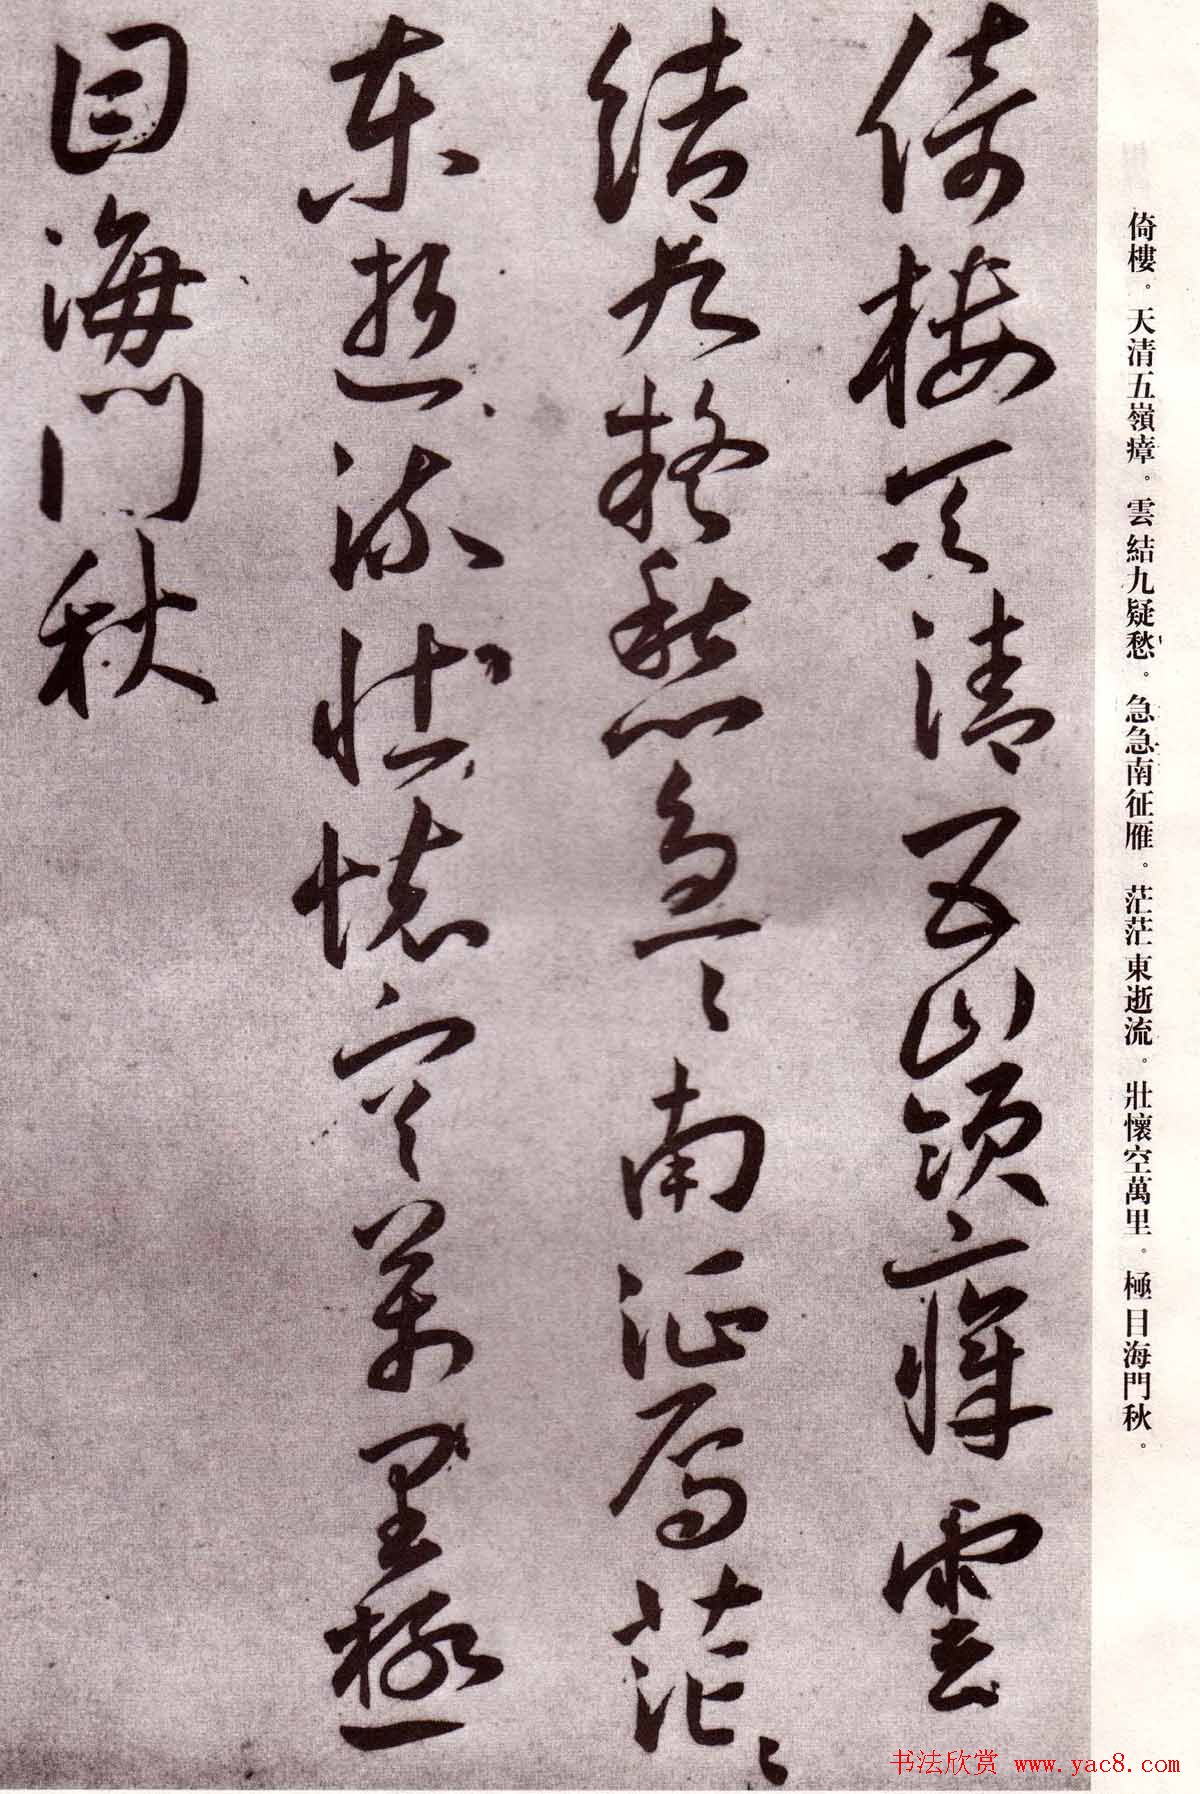 倚樓。天清五嶺瘴。雲結九疑愁。急急南征雁。茫茫東逝流。壯懷空萬里。極目海門秋。
倚樓天清五嶺瘴雲
結九疑愁急〻南征雁茫〻
東逝流壯懷空萬里極
目海門秋
书法欣赏 www.yac8.com